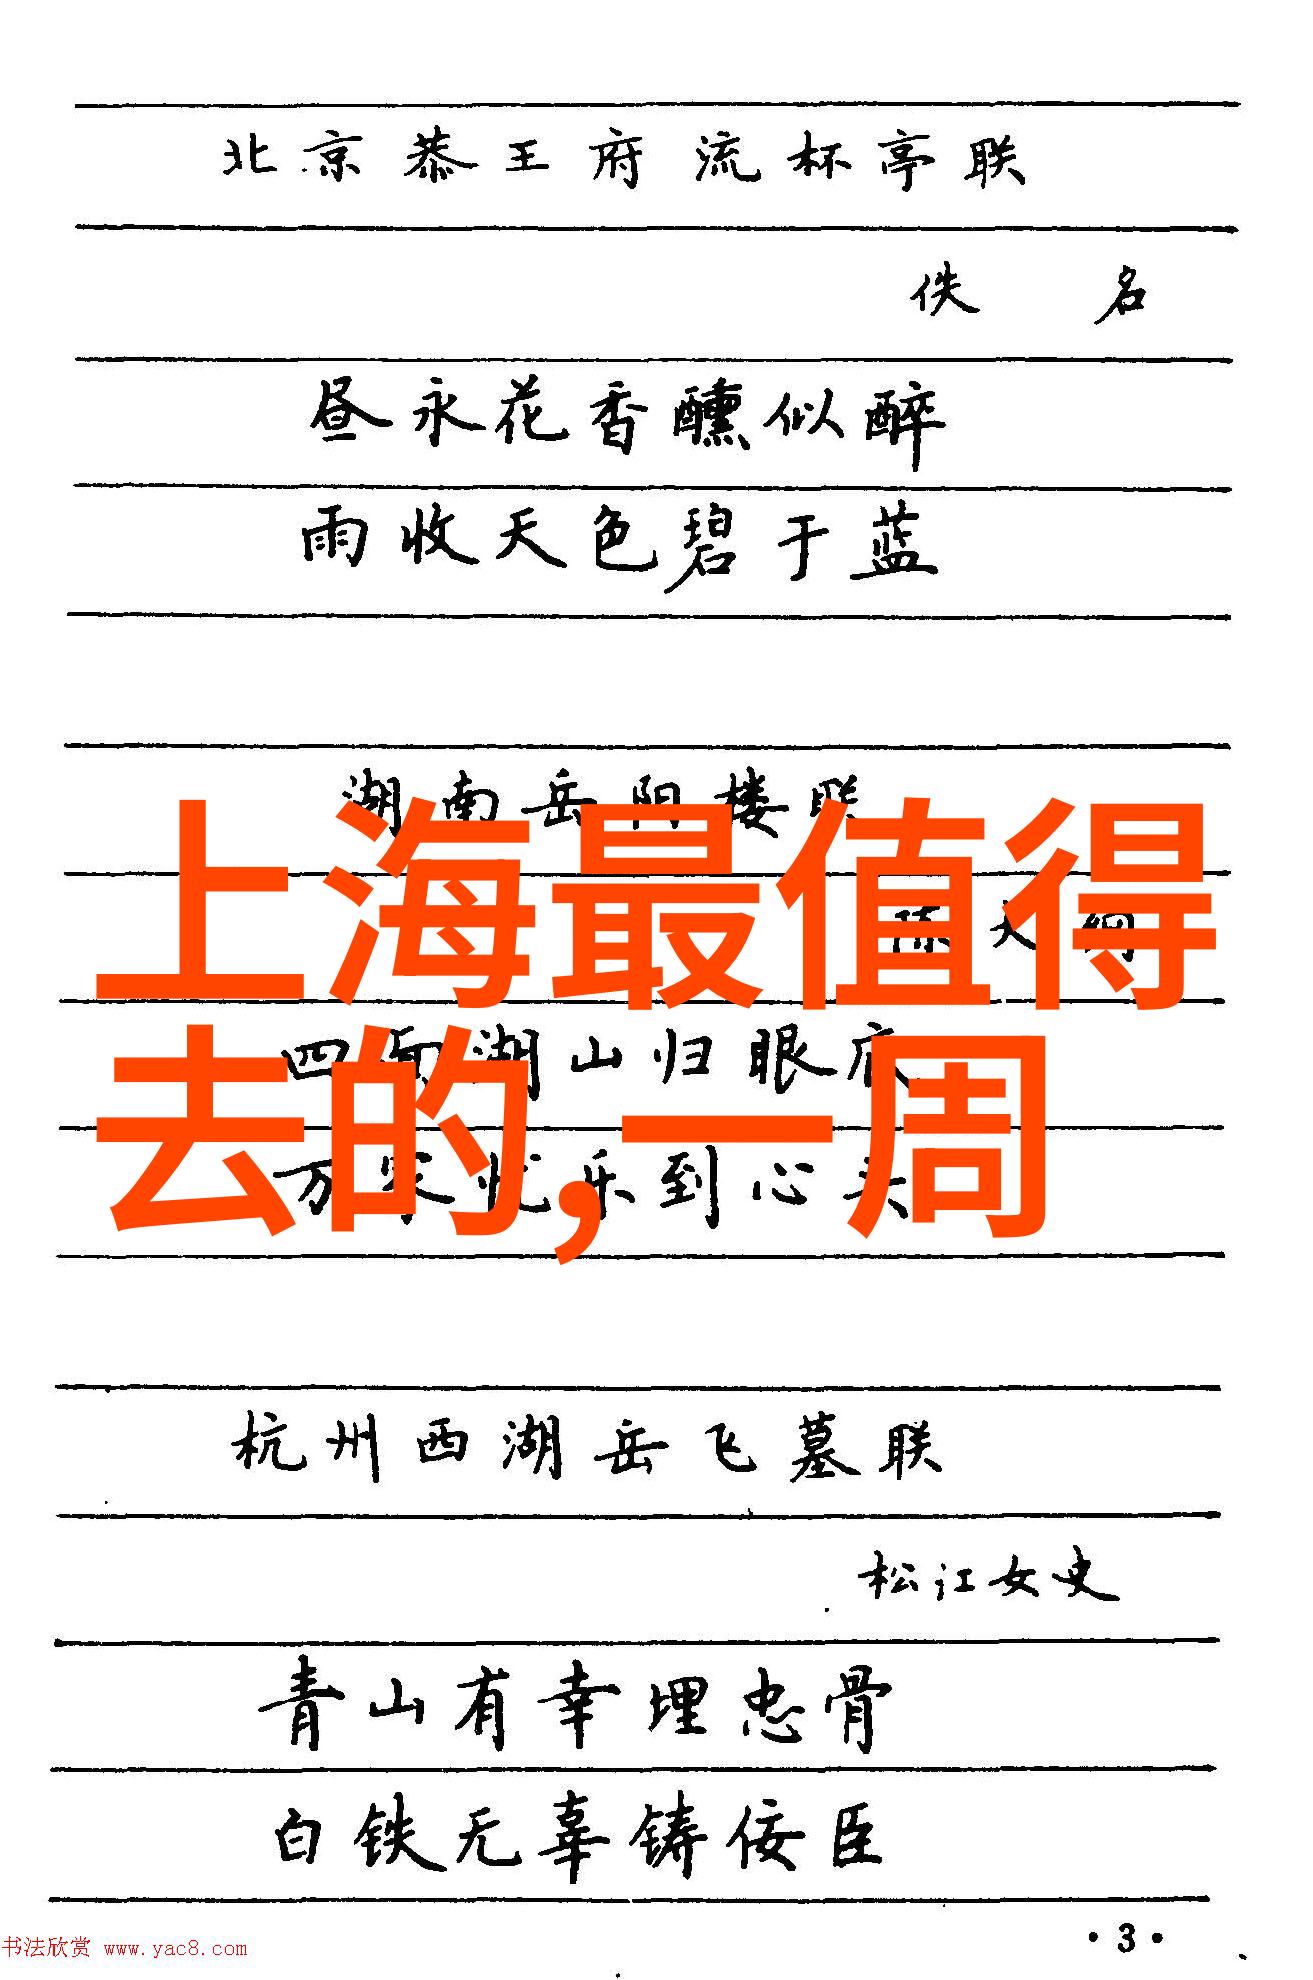 北京恭王府流杯亭联
佚 名
昼永花香醺似醉
雨收天色碧于蓝
湖南岳阳楼联
陈大纲
四面湖山归眼底
万家忧乐到心头
上海最值得
去的,一周
杭州西湖岳飞墓联
松江女史
青山有幸埋忠骨
白铁无辜铸佞臣
·3·
书法欣赏 www.yac8.com